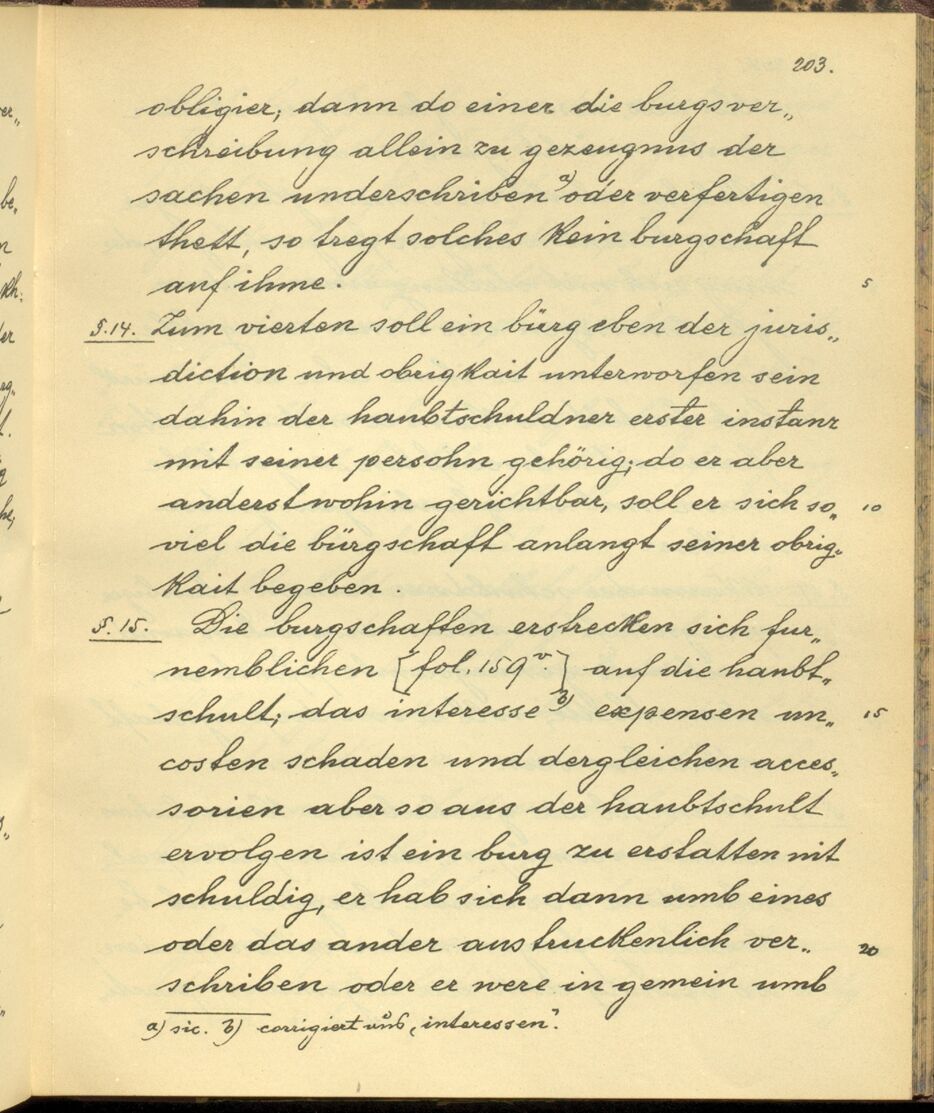 203.
obligier; dann do einer die burgsver„
schreibung allein zu gezeugnus der
sachen underschriben a) oder verfertigen
thett, so tregt solches kein burgschaft
auf ihme. 5
§. 14. Zum vierten soll ein bürg eben der juris„
diction und obrigkait unterworfen sein
dahin der haubtschuldner erster instanz
mit seiner persohn gehörig; do er aber
anderstwohin gerichtbar, soll er sich so„ 10
viel die bürgschaft anlangt seiner obrig„
kait begeben.
§. 15. Die burgschaften erstrecken sich fur„
nemblichen [fol. 159 v.] auf die haubt„
schult; das interesse b) expensen un„ 15
costen schaden und dergleichen acces„
sorien aber so aus der haubtschult
ervolgen ist ein burg zu erstatten nit
schuldig, er hab sich dann umb eines
oder das ander austruckenlich ver„ 20
schriben oder er were in gemein umb
a) sic. b) corrigiert aus „interessen“.